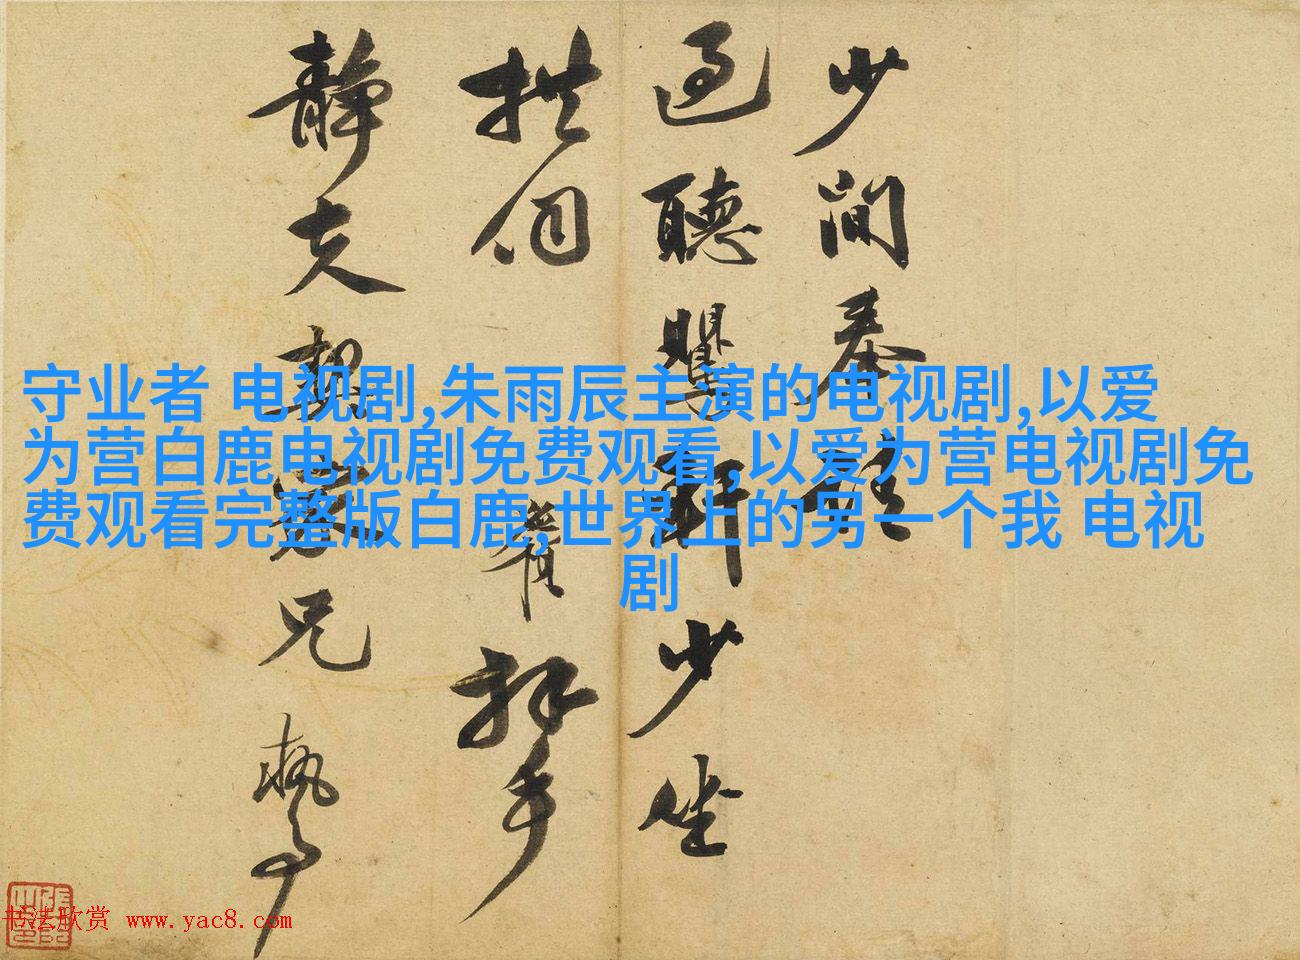 少間奉
過聽鸎軒少坐
拱伺 拜手
靜夫契家兄執事
守业者 电视剧,朱雨辰主演的电视剧,以爱
为营白鹿电视剧免费观看,以爱为营电视剧免
费观看完整版白鹿,世界上的另一个我 电视
剧
书法欣赏 www.yac8.com